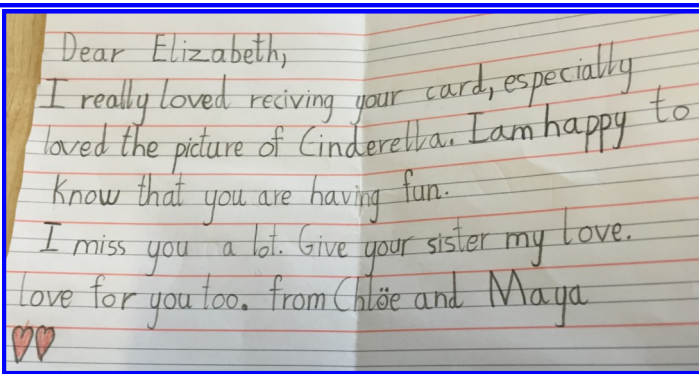 Dear Elizabeth,
I really loved reciving your card, especially
loved the picture of Cinderella. I am happy to
know that you are having fun.
I miss you a lot. Give your sister my love.
love for you too. from Chlöe and Maya